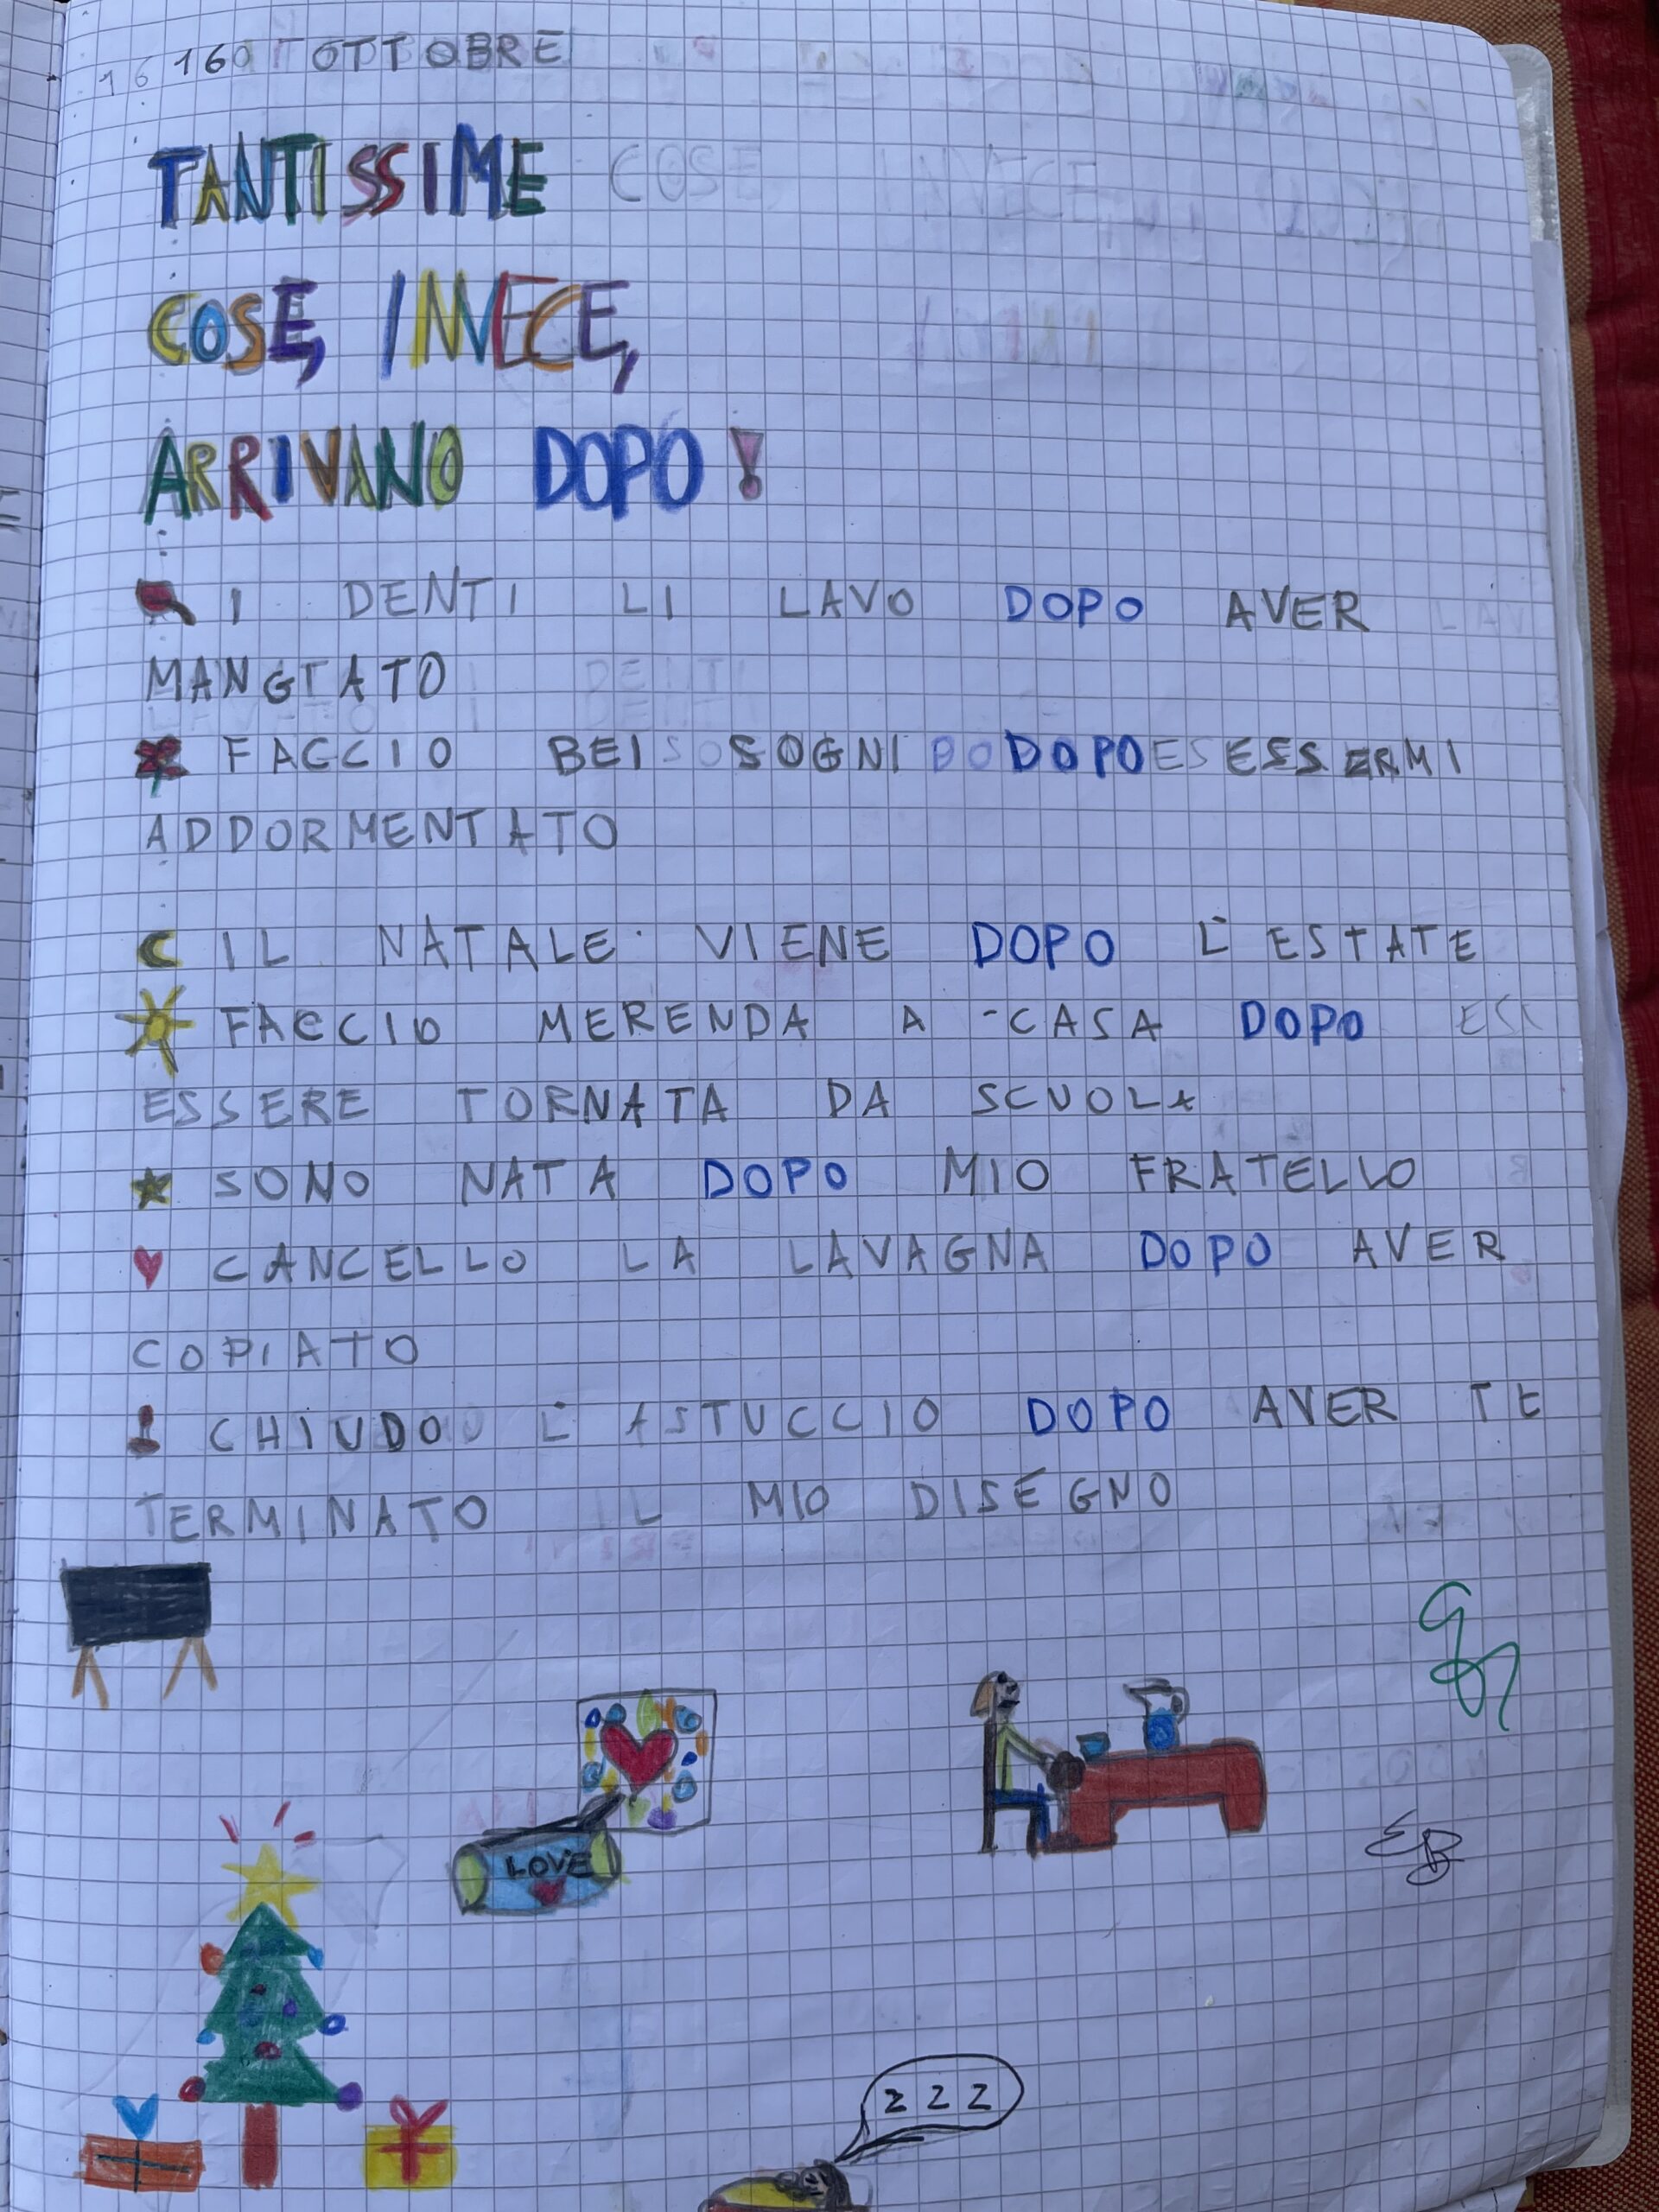 16 OTTOBRE
TANTISSIME
COSE, INVECE,
ARRIVANO DOPO!
I DENTI LI LAVO DOPO AVER
MANGIATO
FACCIO BEI SOGNI DOPO ESSERMI
ADDORMENTATO
IL NATALE VIENE DOPO L'ESTATE
FACCIO MERENDA A CASA DOPO
ESSERE TORNATA DA SCUOLA
SONO NATA DOPO MIO FRATELLO
CANCELLO LA LAVAGNA DOPO AVER
COPIATO
CHIUDO L'ASTUCCIO DOPO AVER TE
TERMINATO IL MIO DISEGNO
LOVE
EB
ZZZ